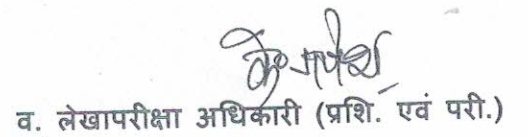 व. लेखापरीक्षा अधिकारी (प्रशि. एवं परी.)